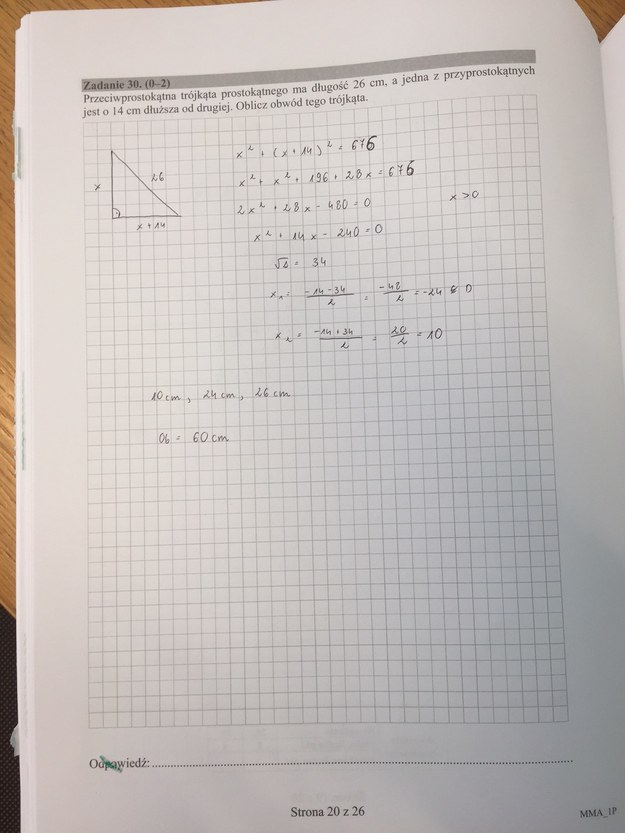 Zadanie 30. (0–2)
Przeciwprostokątna trójkąta prostokątnego ma długość 26 cm, a jedna z przyprostokątnych
jest o 14 cm dłuższa od drugiej. Oblicz obwód tego trójkąta.
x
26
x + 14
x² + (x + 14)² = 676
x² + x² + 196 + 28x = 676
2x² + 28x - 480 = 0
x > 0
x² + 14x - 240 = 0
√Δ = 34
x₁ = \frac{-14-34}{2} = \frac{-48}{2} = -24 < 0
x₂ = \frac{-14+34}{2} = \frac{20}{2} = 10
10 cm, 24 cm, 26 cm
Ob = 60 cm
Odpowiedź:
Strona 20 z 26
MMA_1P